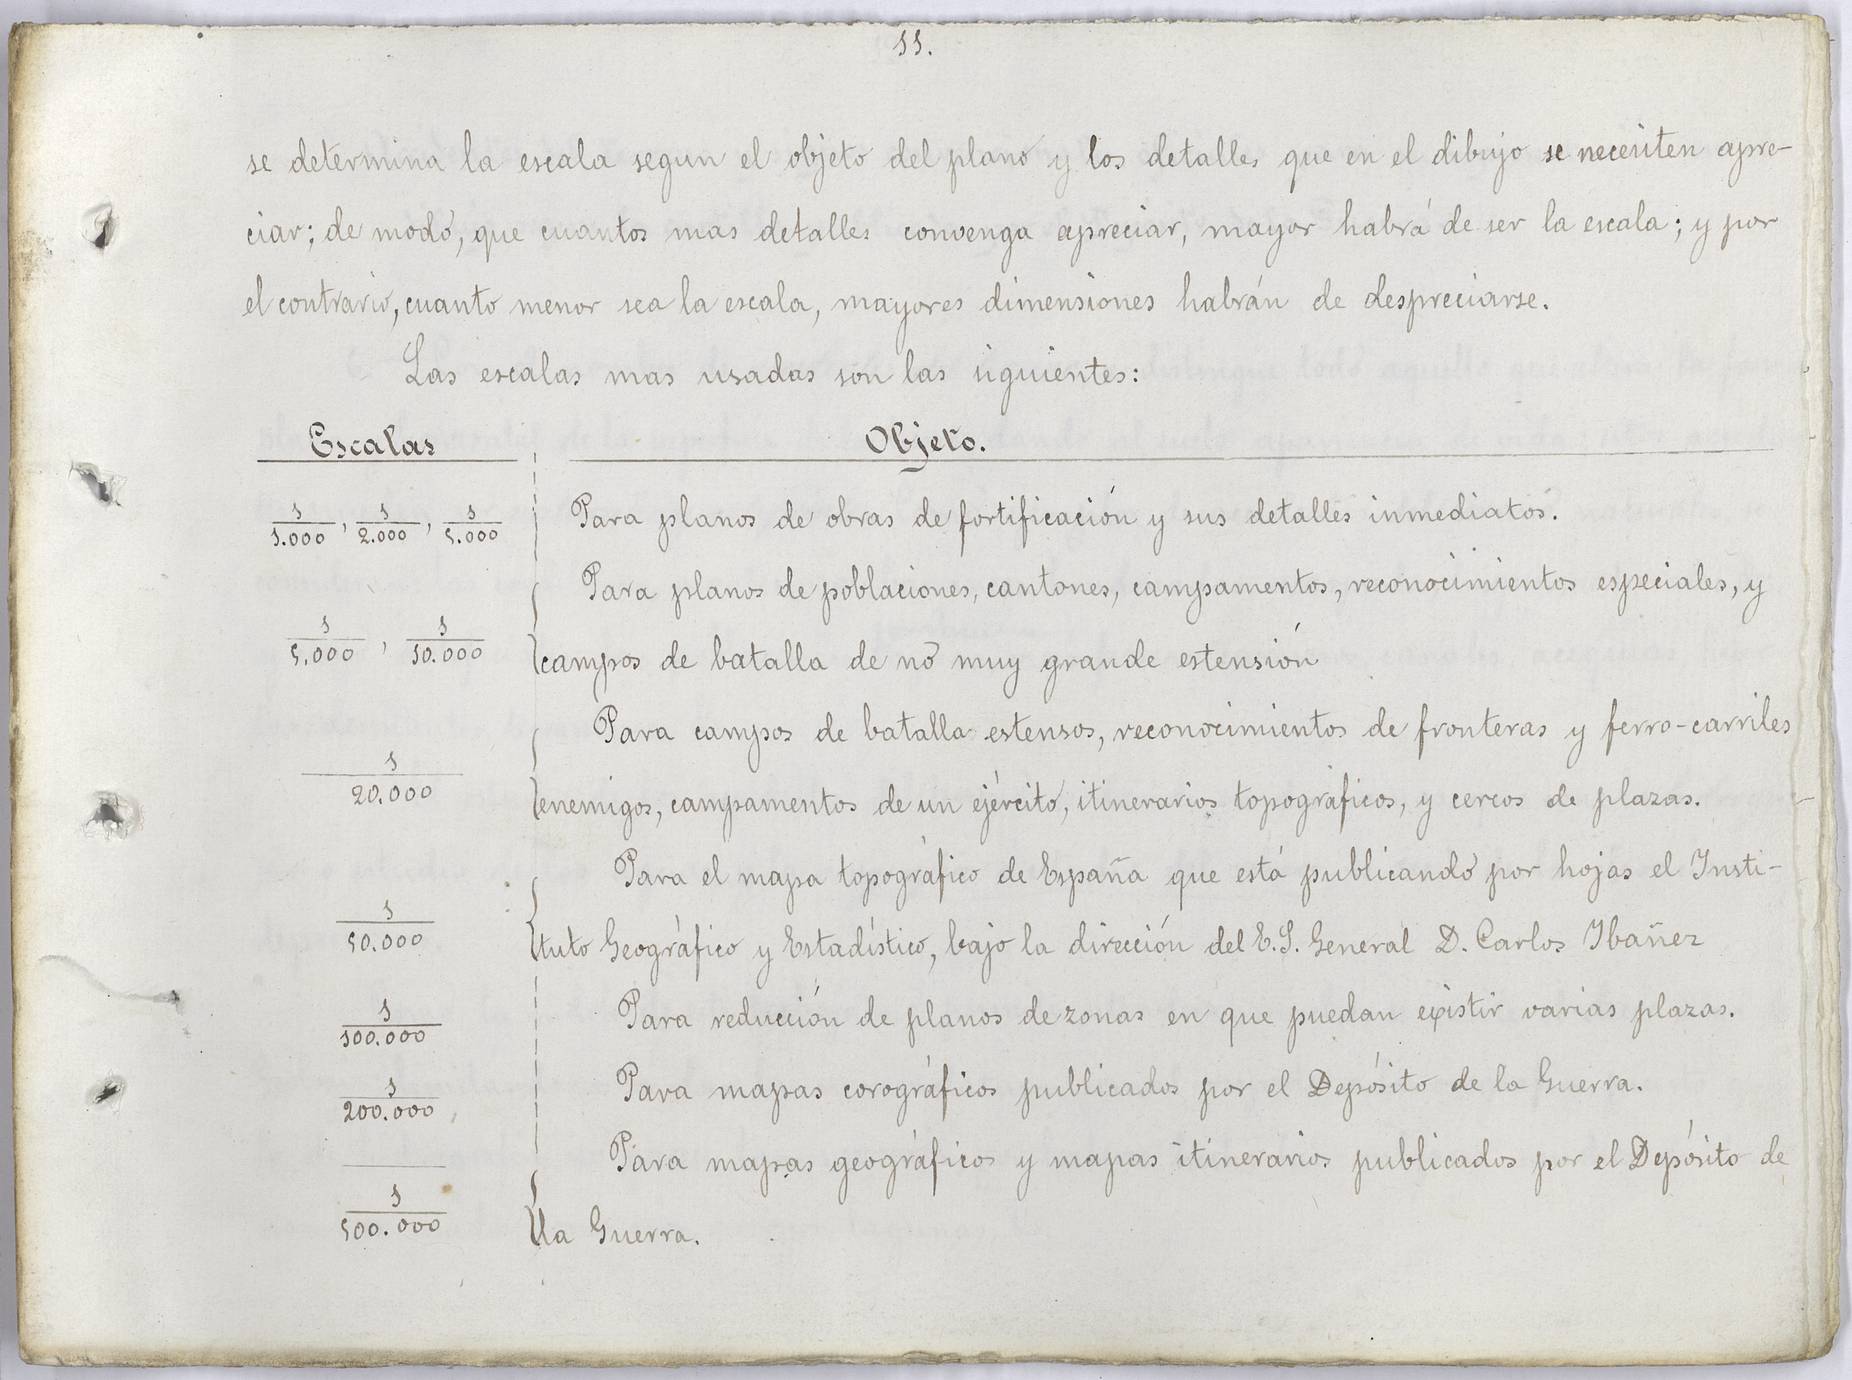 11.
se determina la escala segun el objeto del plano y los detalles que en el dibujo se necesiten apre-
ciar; de modo, que cuantos mas detalles convenga apreciar, mayor habrá de ser la escala; y por
el contrario, cuanto menor sea la escala, mayores dimensiones habrán de despreciarse.
Las escalas mas usadas son las siguientes:
Escalas Objeto.
1/1.000, 1/2.000, 1/5.000 Para planos de obras de fortificación y sus detalles inmediatos.
Para planos de poblaciones, cantones, campamentos, reconocimientos especiales, y
1/5.000, 1/10.000 campos de batalla de no muy grande estensión
Para campos de batalla estensos, reconocimientos de fronteras y ferro-carriles
1/20.000 enemigos, campamentos de un ejército, itinerarios topográficos, y cercos de plazas.
Para el mapa topográfico de España que está publicando por hojas el Insti-
1/50.000 tuto Geográfico y Estadístico, bajo la dirección del E.S. General D. Carlos Ibañez
1/100.000 Para reducción de planos de zonas en que puedan existir varias plazas.
1/200.000 Para mapas corográficos publicados por el Depósito de la Guerra.
Para mapas geográficos y mapas itinerarios publicados por el Depósito de
1/500.000 la Guerra.